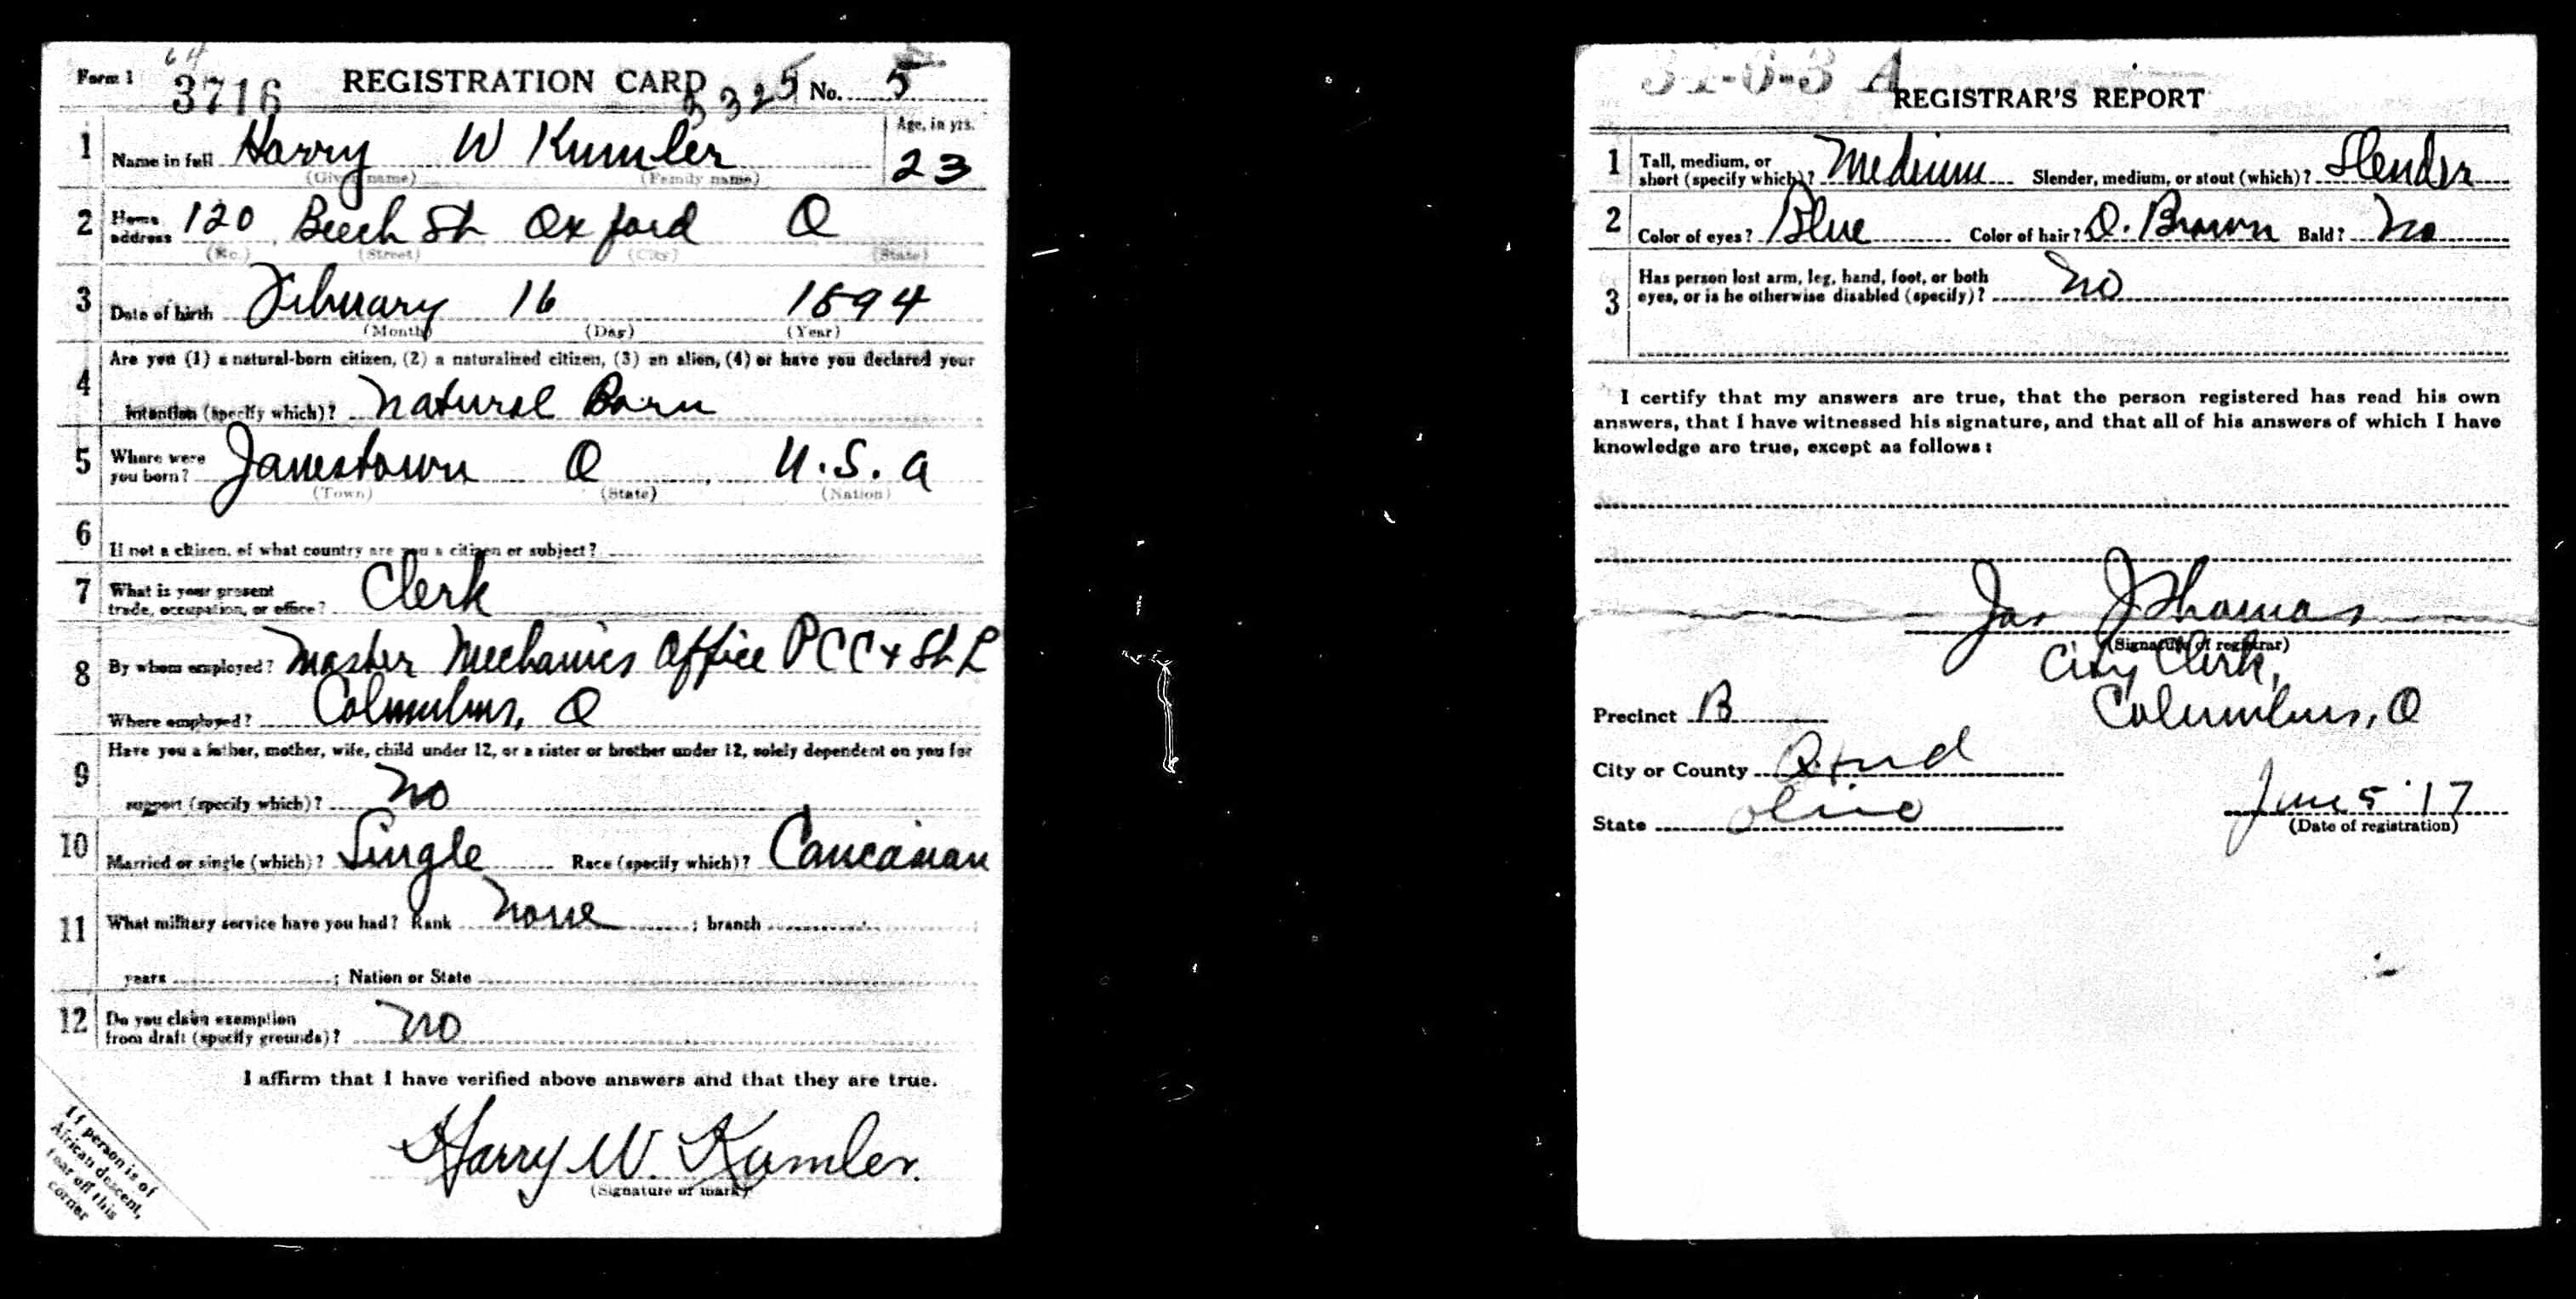 Form 1 3716 REGISTRATION CARD 3325 No. 5
1 Name in full Harry W Kumler Age, in yrs. 23
(Given name) (Family name)
2 Home address 120 Beech St Oxford O
(No.) (Street) (City) (State)
3 Date of birth February 16 1894
(Month) (Day) (Year)
Are you (1) a natural-born citizen, (2) a naturalized citizen, (3) an alien, (4) or have you declared your
4 intention (specify which)? Natural Born
5 Where were you born? Jamestown O U.S.A
(Town) (State) (Nation)
6 If not a citizen, of what country are you a citizen or subject?
7 What is your present trade, occupation, or office? Clerk
8 By whom employed? Master Mechanics Office P C C & St L
Where employed? Columbus, O
Have you a father, mother, wife, child under 12, or a sister or brother under 12, solely dependent on you for
9 support (specify which)? No
10 Married or single (which)? Single Race (specify which)? Caucasian
11 What military service have you had? Rank None ; branch
years ; Nation or State
12 Do you claim exemption from draft (specify grounds)? No
I affirm that I have verified above answers and that they are true.
Harry W. Kumler.
(Signature or mark)
If person is of
African descent,
tear off this
corner
REGISTRAR'S REPORT
1 Tall, medium, or short (specify which)? Medium Slender, medium, or stout (which)? Slender
2 Color of eyes? Blue Color of hair? D. Brown Bald? No
Has person lost arm, leg, hand, foot, or both
3 eyes, or is he otherwise disabled (specify)? No
I certify that my answers are true, that the person registered has read his own
answers, that I have witnessed his signature, and that all of his answers of which I have
knowledge are true, except as follows:
Jas J Thomas
(Signature of registrar)
City Clerk,
Precinct B Columbus, O
City or County
State Ohio June 5 '17
(Date of registration)